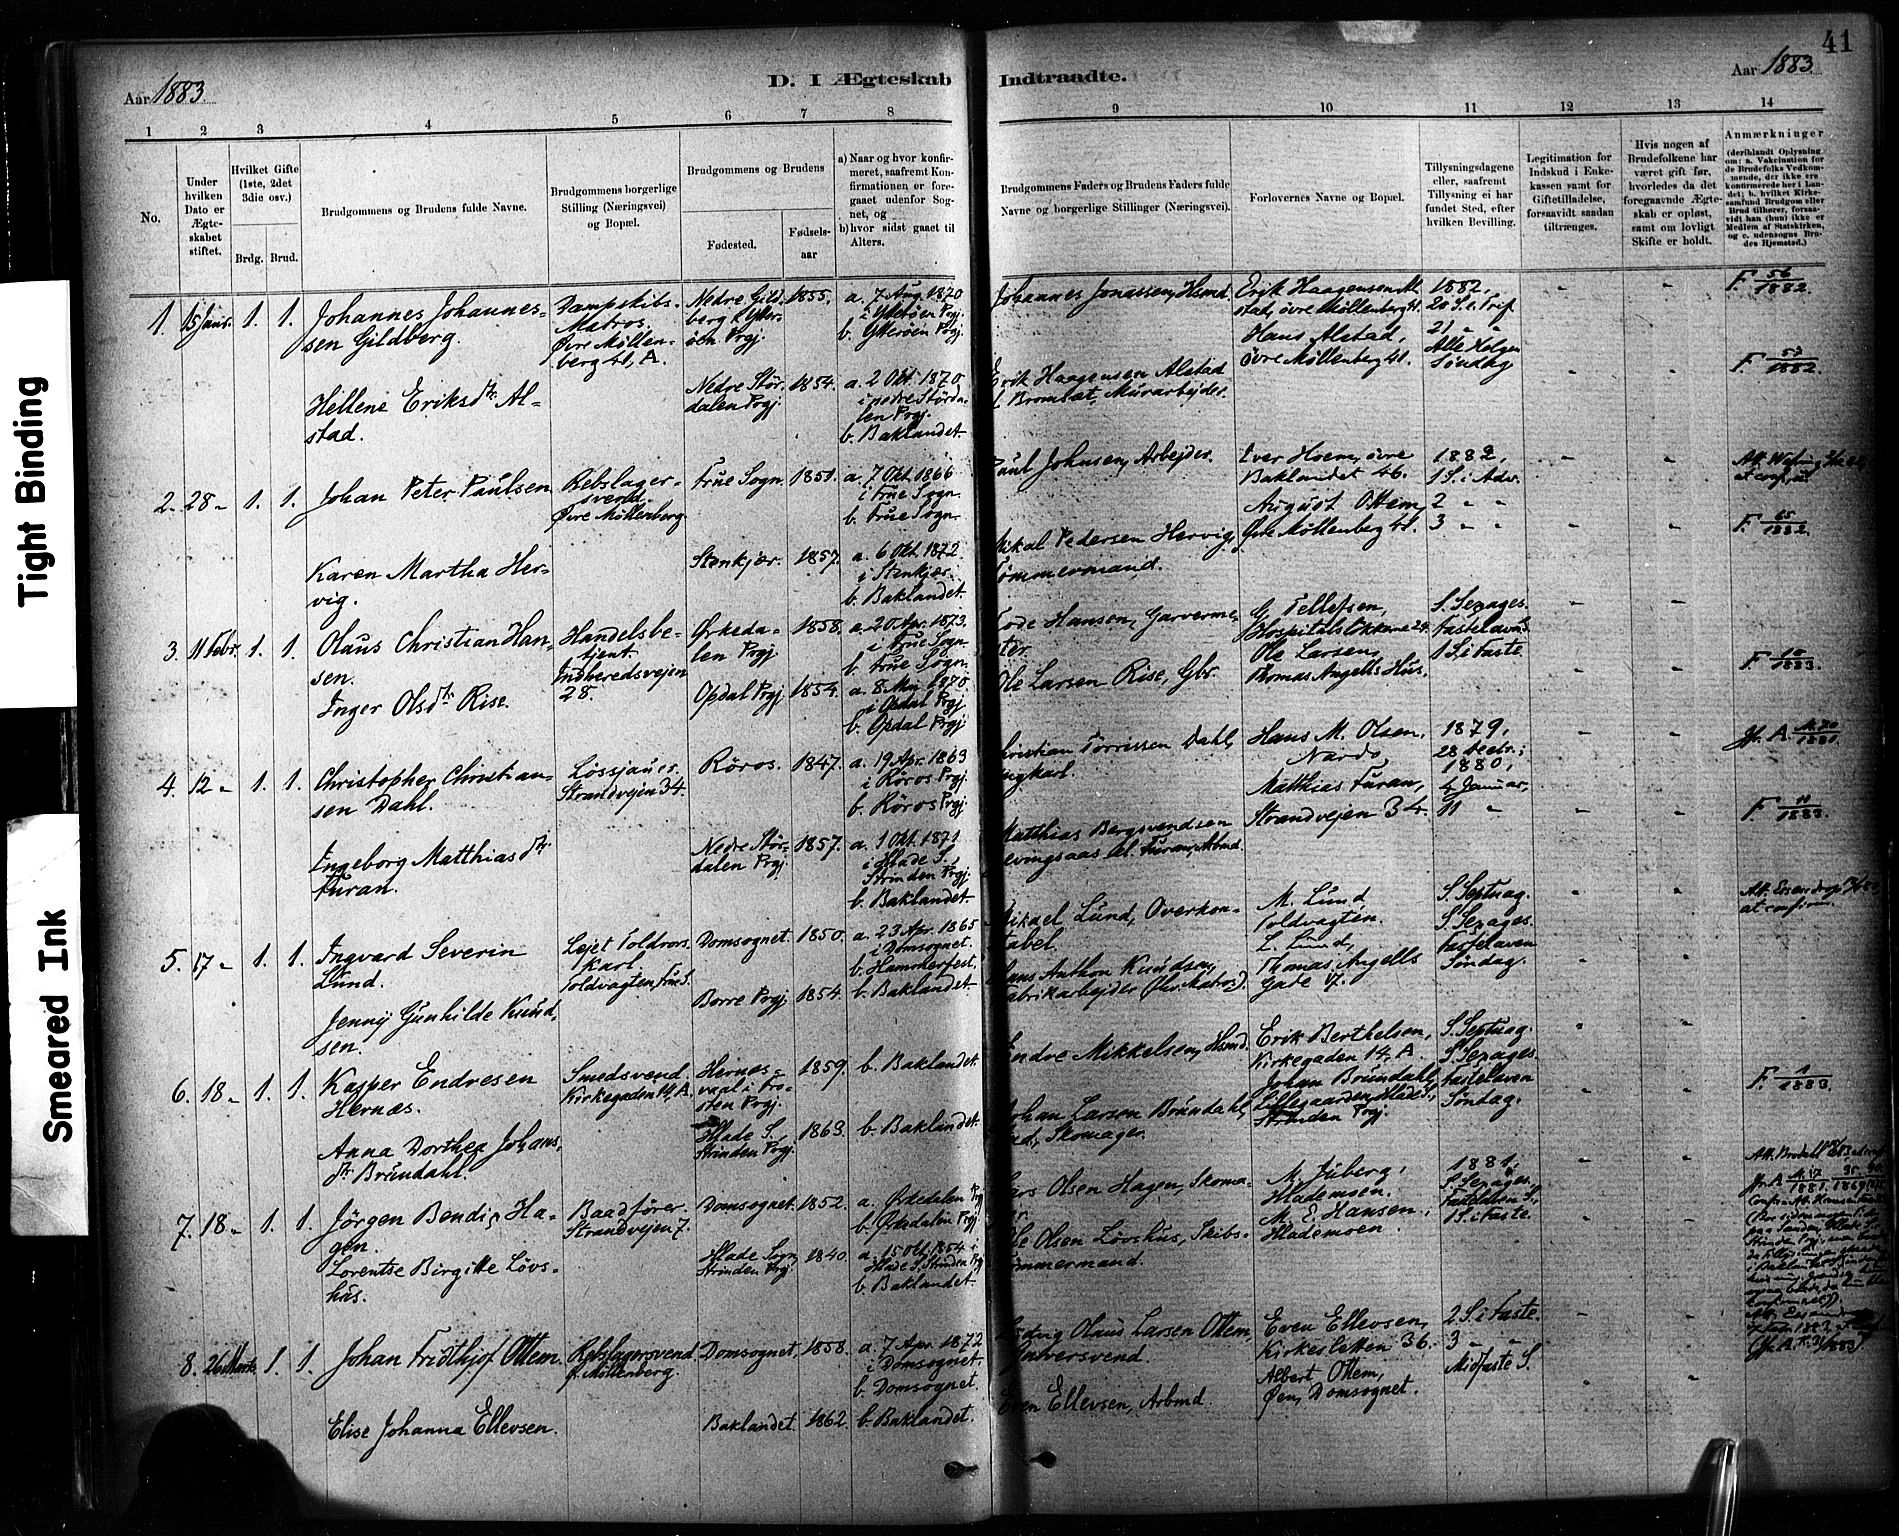 41
Aar 1883.
D. I Ægteskab Indtraadte.
Aar 1883.
1 2 3 4 5 6 7 8 9 10 11 12 13 14
No.
Under hvilken Dato er Ægteskabet stiftet.
Hvilket Gifte (1ste, 2det 3die osv.)
Brdg. Brud.
Brudgommens og Brudens fulde Navne.
Brudgommens borgerlige Stilling (Næringsvei) og Bopæl.
Brudgommens og Brudens
Fødested.
Fødsels-aar
a) Naar og hvor konfirmeret, saafremt Konfirmationen er foregaaet udenfor Sognet, og
b) hvor sidst gaaet til Alters.
Brudgommens Faders og Brudens Faders fulde Navne og borgerlige Stillinger (Næringsvei).
Forlovernes Navne og Bopæl.
Tillysningsdagene eller, saafremt Tillysning ei har fundet Sted, efter hvilken Bevilling.
Legitimation for Indskud i Enkekassen samt for Giftetilladelse, forsaavidt saadan tiltrænges.
Hvis nogen af Brudefolkene har været gift før, hvorledes da det foregaaende Ægteskab er opløst, samt om lovligt Skifte er holdt.
Anmærkninger
(deriblandt Oplysning om: a. Vakcination for de Brudefolks Vedkommende, der ikke ere konfirmerede her i Landet; b. hvilket Kirkesamfund Brudgom eller Brud tilhører, forsaavidt han (hun) ikke er Medlem af Statskirken, og c. udensogns Brudes Hjemsted.)
1. 15 Janr. 1. 1. Johannes Johannessen Gildberg.
Dampskibs-
Matros,
Øvre Møllen-
berg 41, A.
Nedre Gild-
berg i Ytter-
öen Prgj.
1855.
a. 7 Aug. 1870
i Ytteröen Prgj.
b. Ytteröen Prgj.
Johannes Jonassen, Hsmd.
Erik Haagensen Al-
stad, övre Möllenberg 41.
Hans Alstad,
övre Möllenberg 41.
1882.
20 S. e. Trif
21 " "
Alle Helgen
Söndag
F. 56/1882.
Hellene Eriksdtr Al-
stad.
Nedre Stör-
dalen Prgj.
1854.
a. 2 Okt. 1870
i nedre Störda-
len Prgj.
b. Baklandet.
Erik Haagensen Alstad
Murarbejder.
F. 57/1882.
2. 28 " 1. 1. Johan Peter Paulsen
Rebslager-
svend.
Øvre Møllenberg
Frue Sogn. 1851.
a. 7 Okt. 1866
i Frue Sogn.
b. Frue Sogn.
Paul Johnsen, Arbejder.
Iver Hoem, övre
Baklandet 46.
August Ottem,
Øvre Möllenberg 41.
1882.
1 S. i Adv.
2 " "
3 " "
Karen Martha Her-
vig.
Stenkjær. 1857.
a. 6 Okt. 1872
i Stenkjær.
b. Baklandet.
Mikal Pedersen Hervig,
Tömmermand.
F. 65/1882.
3. 11 Febr. 1. 1. Olaus Christian Han-
sen.
Handelsbe-
tjent.
Indherredsvejen
28.
Ørkeda-
len Prgj.
1858.
a. 20 Apr. 1873.
i Frue Sogn.
b. Frue Sogn.
Tode Hansen, Garverme-
ster.
G. Tellefsen,
Hospitalslökkene 24.
Ole Larsen,
Thomas Angells Hus.
S. Sexages.
Fastelavns
1 S. i Faste.
Inger Olsdtr Rise.
Opdal Prgj. 1854.
a. 8 Mai 1870.
i Opdal Prgj
b. Opdal Prgj
Ole Larsen Rise, Gbr.
F. 10/1883.
4. 12 " 1. 1. Christopher Christian-
sen Dahl.
Løssjauer.
Strandvejen 34.
Röros. 1847.
a. 19 Apr. 1863
i Röros Prgj.
b. Röros Prgj.
Kristian Torrissen Dahl,
Hans M. Olsen,
Nardo
Matthias Furan,
Strandvejen 34.
1879,
28 Decbr.;
1880,
4 Januar,
11 "
Ingeborg Matthiasdtr
Furan.
Nedre Stör-
dalen Prgj.
1857.
a. 1 Okt. 1871
i Hlade S.,
Strinden Prgj.
b. Baklandet.
Matthias Bergsvendsen
Furan, Arbmd.
F. 11/1883.
5. 17 " 1. 1. Ingvard Severin
Lund.
Lejet Toldrors-
karl
Toldvagten, Frue S.
Domsognet. 1850.
a. 23 Apr. 1865
i Domsognet.
b. Hammerfest.
Mikael Lund, Overkon-
stabel.
M. Lund
Toldvagten.
L. Lund,
Thomas Angells
Gade 17.
S. Septuag.
S. Sexages.
Fastelaven
Söndag.
Jenny Gunhilde Knud-
sen.
Borre Prgj. 1854. b. Baklandet
Hans Anthon Knudsen,
Fabrikarbejder (för Matros).
6. 18 " 1. 1. Kasper Endresen
Hernæs.
Smedsvend
Kirkegaden 14, A.
Hernæs-
vaal i Fro-
sten Prgj.
1859. b. Baklandet.
Endre Mikkelsen, Hsmd.
Erik Berthelsen,
Kirkegaden 14, A.
Johan Brundahl,
Lillegaarden, Hlade S.,
Strinden Prgj.
S. Septuag.
S. Sexages.
Fastelaven
Söndag.
Anna Dorthea Johans-
dtr Brundahl.
Hlade S.,
Strinden Prgj.
1863. b. Baklandet.
Johan Larsen Brundahl,
Skomager.
F. 1/1883.
7. 18 " 1. 1. Jörgen Bendix Ha-
gen.
Baadförer.
Strandvejen 7.
Domsognet. 1852.
a. Ørkedalen Prgj
b. Ørkedalen Prgj.
Lars Olsen Hagen, Skoma-
ger
M. Juberg,
Hlademoen.
M. E. Hansen,
Hlademoen.
1881,
S. Sexages.,
Fastelaven S.,
1 S. i Faste.
Lorentse Birgitte Lövs-
hus.
Hlade Sogn,
Strinden Prgj
1840.
a. 15 Okt. 1854 i
Hlade S. Strinden Prgj
b. Baklandet.
Ole Olsen Lövshus, Skibs-
tömmermand.
8. 26 Marts 1. 1. Johan Fridthjof Ottem.
Rebslagersvend
ö. Möllenberg.
Domsognet. 1858.
a. 7 Apr. 1872
i Domsognet.
b. Domsognet.
Ludvig Olaus Larsen Ottem,
Garversvend.
Even Ellevsen,
Kirkesletten 36.
Albert Ottem,
Øen, Domsognet.
2 S. i Faste.
3 " "
Midfaste S.
Elise Johanna Ellevsen.
Baklandet. 1862. b. Baklandet.
Even Ellevsen, Arbmd.
Tight Binding
Smeared Ink